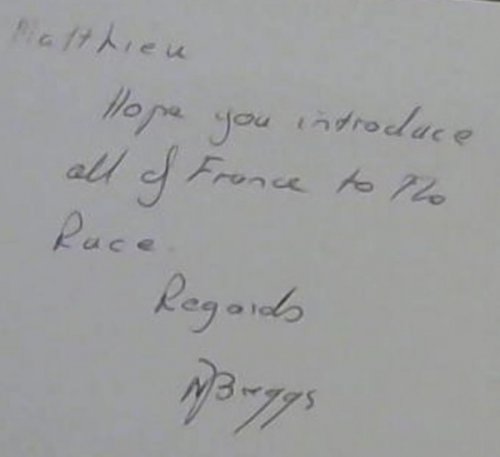 Matthieu
Hope you introduce
all of France to
Race.
Regards
NJBriggs